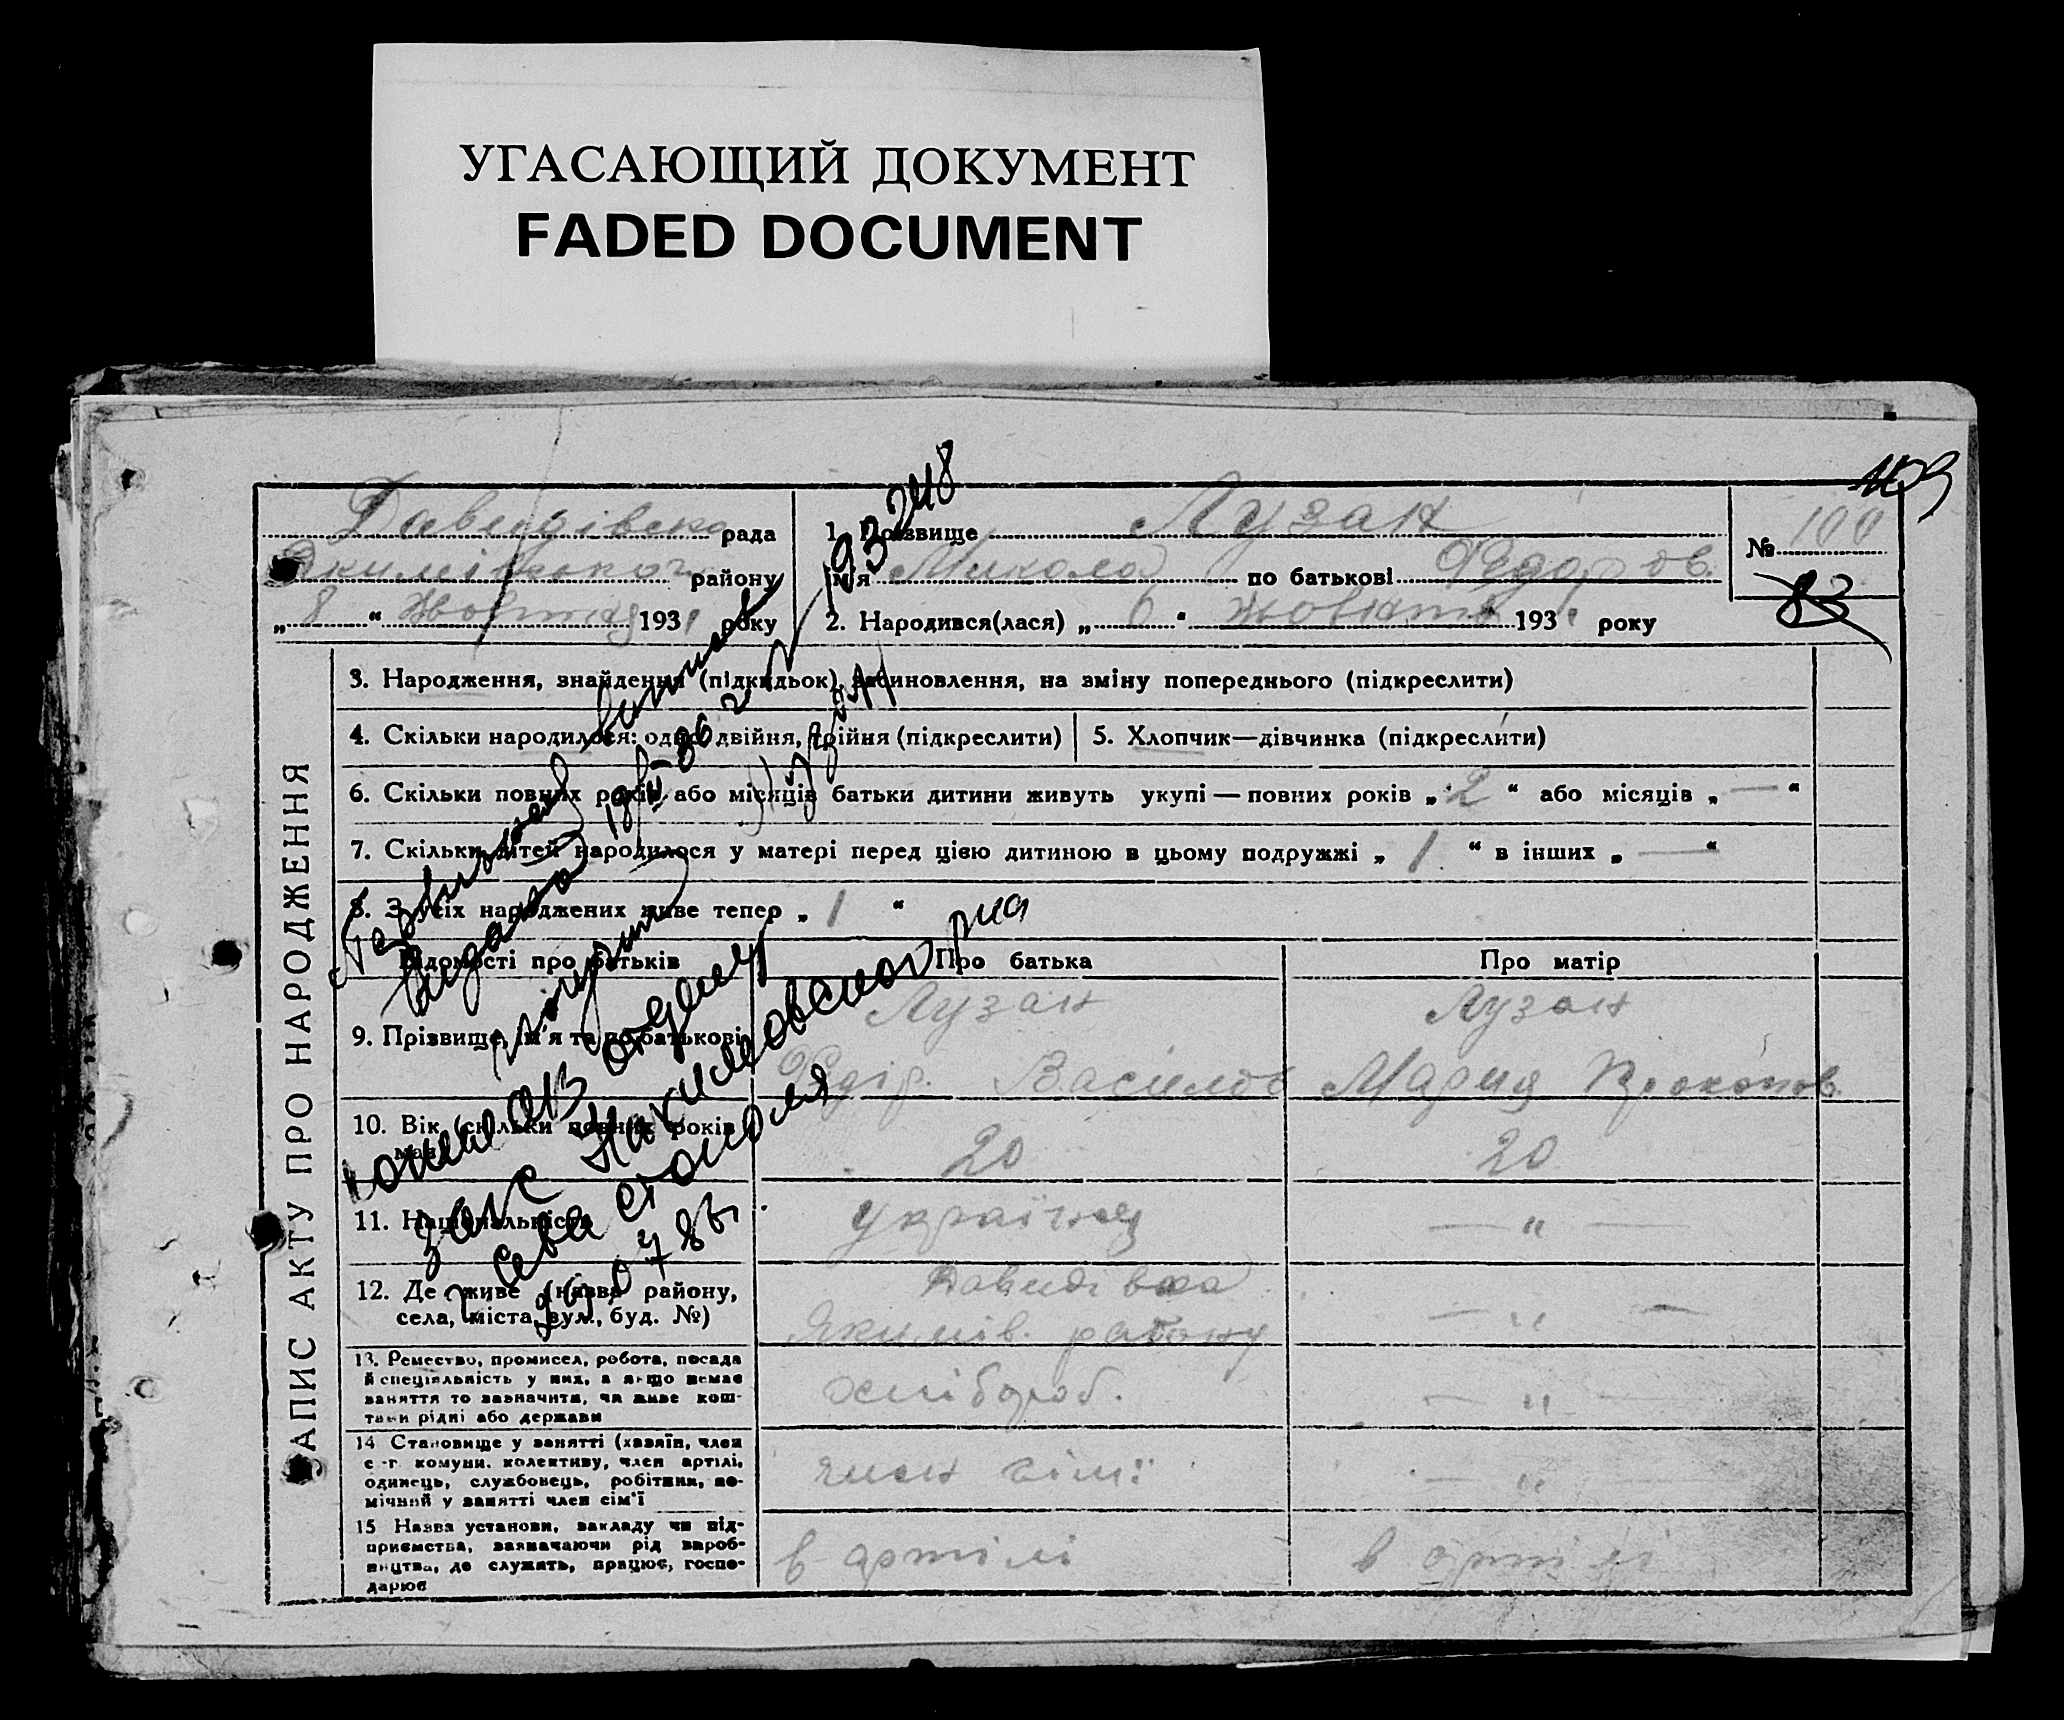 УГАСАЮЩИЙ ДОКУМЕНТ
FADED DOCUMENT
109
Давидівська рада
Якимівського району
„ 8 “ Жовтня 1931 року
1. Прізвище Лузан
ім'я Микола по батькові Федоров.
2. Народився(лася) „ 6 “ жовтня 1931 року
№ 100
83
ЗАПИС АКТУ ПРО НАРОДЖЕННЯ
3. Народження, знайдення (підкидьок), всиновлення, на зміну попереднього (підкреслити)
4. Скільки народилося: одно, двійня, трійня (підкреслити)
5. Хлопчик—дівчинка (підкреслити)
6. Скільки повних років або місяців батьки дитини живуть укупі — повних років „ 2 “ або місяців „ — “
7. Скільки дітей народилося у матері перед цією дитиною в цьому подружжі „ 1 “ в інших „ — “
8. З усіх народжених живе тепер „ 1 “
Відомості про батьків
Про батька
Про матір
9. Прізвище, ім'я та по батькові
Лузан
Федір. Василов
Лузан
Мария Прокопов.
10. Вік (скільки повних років має)
20
20
11. Національність
українец
— “ —
12. Де живе (назва району,
села, міста, вул., буд. №)
Давидівка
Якимів. району
— “ —
13. Ремество, промисел, робота, посада
й спеціяльність у них, а якщо немає
заняття то зазначити, чи живе кош-
тами рідні або держави
хлібороб.
— “ —
14 Становище у занятті (хазяїн, член
с.-г. комуни, колективу, член артілі,
одинець, службовець, робітник, по-
мічний у занятті член сім'ї
член сім'ї
— “ —
15 Назва установи, закладу чи під-
приємства, зазначаючи рід вироб-
ництва, де служить, працює, госпо-
дарює
в артілі
в артілі
93 248
Повторное
Выдано
отделу
загс Нахимовского р-на
г. Севастополя
26.07.86.